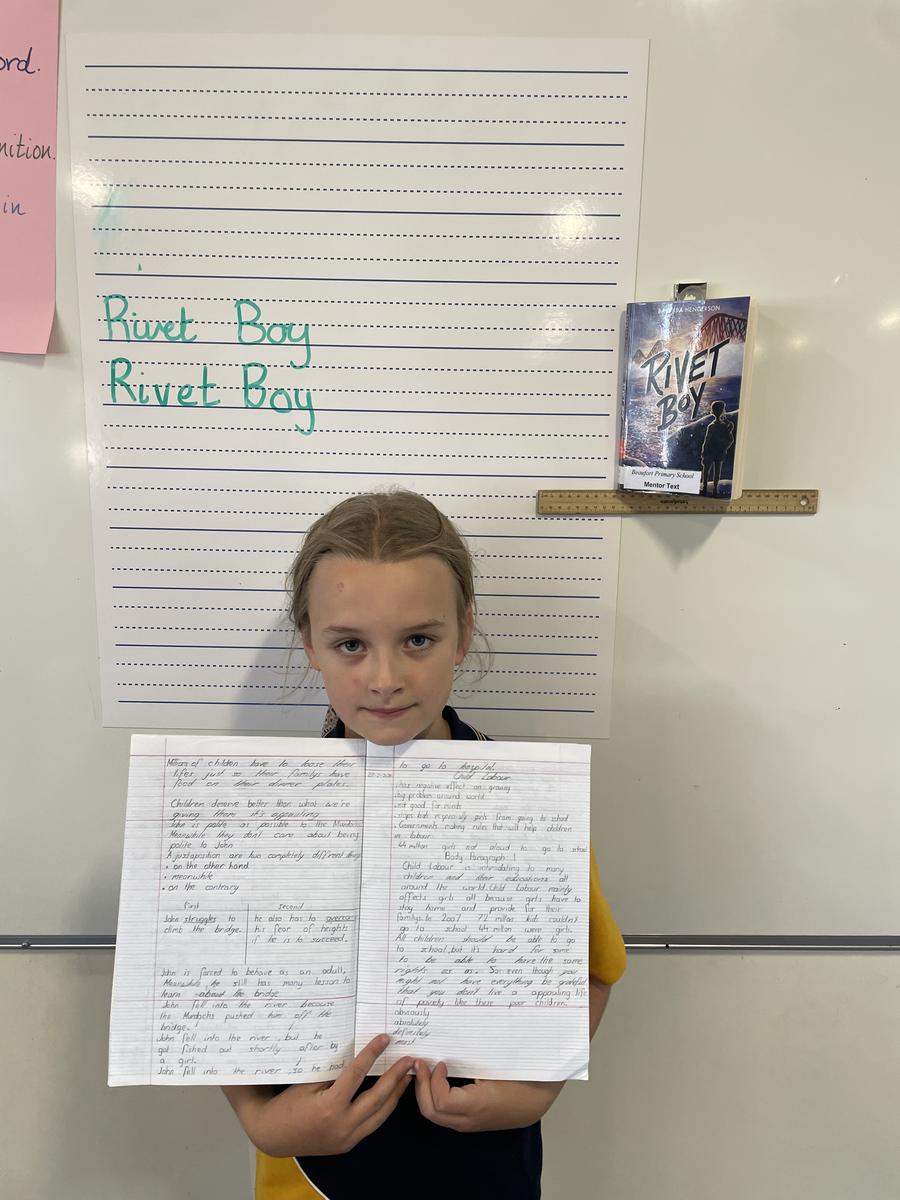 ord.
nition.
in
Rivet Boy
Rivet Boy
BARBARA HENDERSON
RIVET
BOY
Beaufort Primary School
Mentor Text
Millions of children have to loose their
lifes, just so their familys have
food on their dinner plates.
Children deserve better than what we're
giving them it's appauling
John is polite as possible to the Murdochs
Meanwhile they don't care about being
polite to John
A juxtaposition are two completely different things
• on the other hand
• meanwhile
• on the contrary
first second
John struggles to he also has to overcome
climb the bridge. his fear of heights
if he is to succeed.
John is forced to behave as an adult,
Meanwhile, he still has many lesson to
learn about the bridge
John fell into the river because
the Murdochs pushed him off the
bridge.
John fell into the river, but he
got fished out shortly after by
a girl.
John fell into the river, so he had
to go to hospital.
Child Labour
• has negative effect on growing
• big problem around world
• not good for minds
• stops kids especially girls from going to school
• Governments making rules that will help children
in labour
44 million girls not aloud to go to school
Body Paragraph 1
Child Labour is intimidating to many
children and their educations all
around the world. Child Labour mainly
affects girls all because girls have to
stay home and provide for their
familys. In 2007 72 million kids couldn't
go to school 44 million were girls.
All children should be able to go
to school, but it's hard for some
to be able to have the same
rights as us. So even though you
might not have everything be grateful
that you don't live a appauling life
of poverty like these poor children.
obviously
absolutely
definitely
must